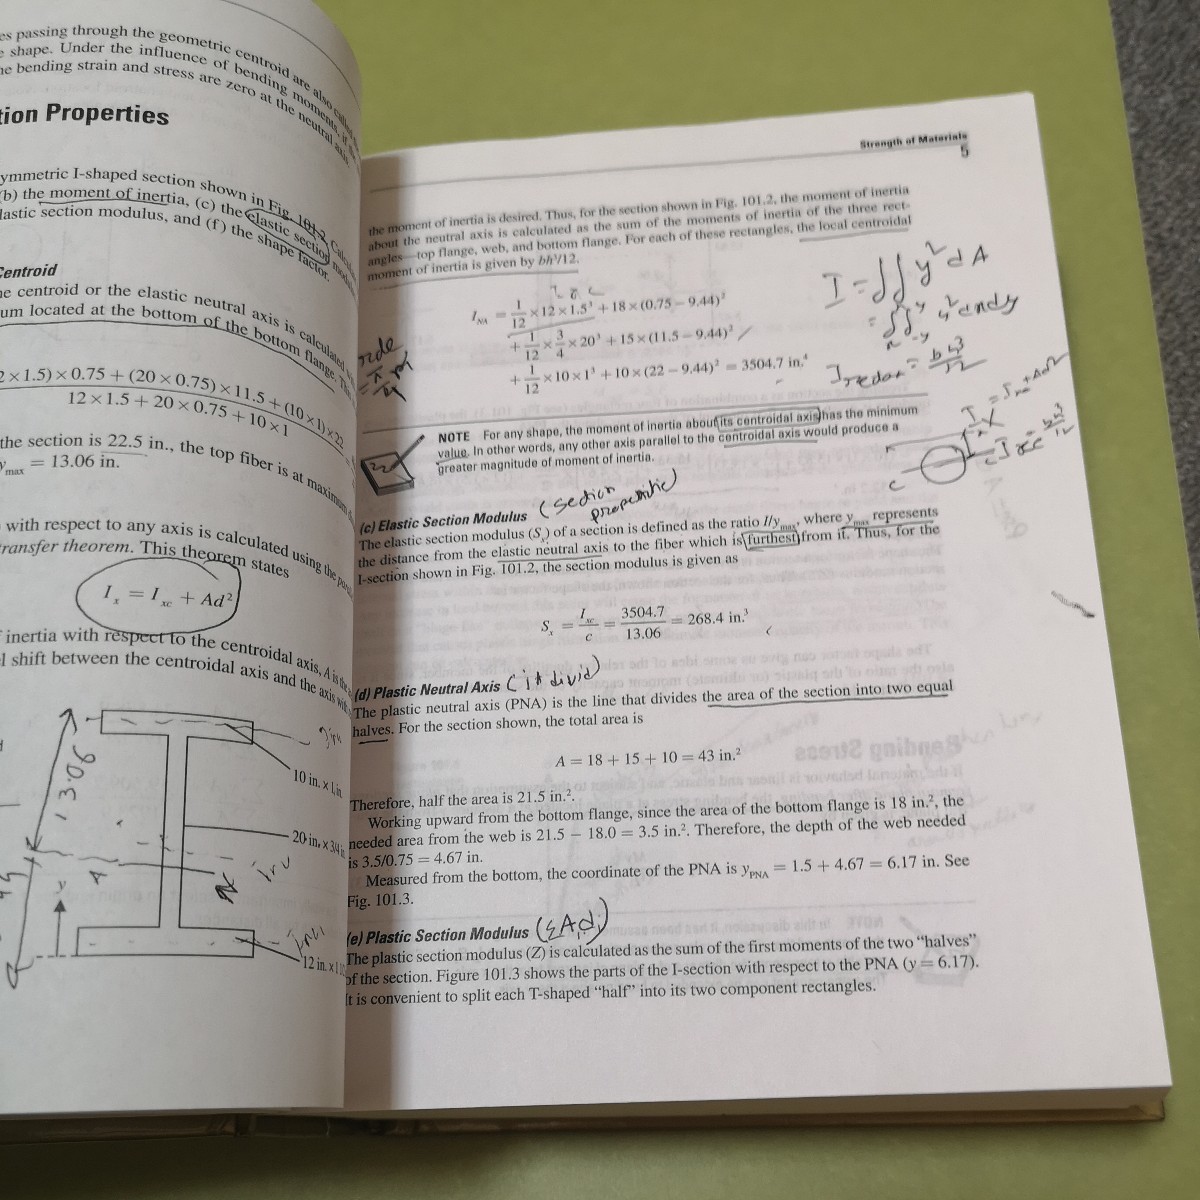 es passing through the geometric centroid are also called
shape. Under the influence of bending moments, it
bending strain and stress are zero at the neutral axis.
tion Properties
ymmetric I-shaped section shown in Fig. 101.2. Calculate
(b) the moment of inertia, (c) the elastic section
lastic section modulus, and (f) the shape factor.
Centroid
e centroid or the elastic neutral axis is calculated
um located at the bottom of the bottom flange.
2 × 1.5) × 0.75 + (20 × 0.75) × 11.5 + (10 × 1) × 22
12 × 1.5 + 20 × 0.75 + 10 × 1
the section is 22.5 in., the top fiber is at maximum
y max = 13.06 in.
with respect to any axis is calculated using the
ransfer theorem. This theorem states
I x = I xc + Ad²
inertia with respect to the centroidal axis, A is the
l shift between the centroidal axis and the axis
13.06
10 in. × 1 in.
20 in. × 3/4 in.
12 in. × 1
y
Strength of Materials
5
the moment of inertia is desired. Thus, for the section shown in Fig. 101.2, the moment of inertia
about the neutral axis is calculated as the sum of the moments of inertia of the three rect-
angles—top flange, web, and bottom flange. For each of these rectangles, the local centroidal
moment of inertia is given by bh³/12.
I NA = 1/12 × 12 × 1.5³ + 18 × (0.75 − 9.44)²
+ 1/12 × 3/4 × 20³ + 15 × (11.5 − 9.44)²
+ 1/12 × 10 × 1³ + 10 × (22 − 9.44)² = 3504.7 in.⁴
I = ∬ y² dA
NOTE For any shape, the moment of inertia about its centroidal axis has the minimum
value. In other words, any other axis parallel to the centroidal axis would produce a
greater magnitude of moment of inertia.
(c) Elastic Section Modulus (section
The elastic section modulus (S x) of a section is defined as the ratio I/y max, where y max represents
the distance from the elastic neutral axis to the fiber which is furthest from it. Thus, for the
I-section shown in Fig. 101.2, the section modulus is given as
S x = I xc / c = 3504.7 / 13.06 = 268.4 in.³
(d) Plastic Neutral Axis (it divid)
The plastic neutral axis (PNA) is the line that divides the area of the section into two equal
halves. For the section shown, the total area is
A = 18 + 15 + 10 = 43 in.²
Therefore, half the area is 21.5 in.².
Working upward from the bottom flange, since the area of the bottom flange is 18 in.², the
needed area from the web is 21.5 − 18.0 = 3.5 in.². Therefore, the depth of the web needed
is 3.5/0.75 = 4.67 in.
Measured from the bottom, the coordinate of the PNA is y PNA = 1.5 + 4.67 = 6.17 in. See
Fig. 101.3.
(e) Plastic Section Modulus (ΣAᵢdᵢ)
The plastic section modulus (Z) is calculated as the sum of the first moments of the two “halves”
of the section. Figure 101.3 shows the parts of the I-section with respect to the PNA (y = 6.17).
It is convenient to split each T-shaped “half” into its two component rectangles.